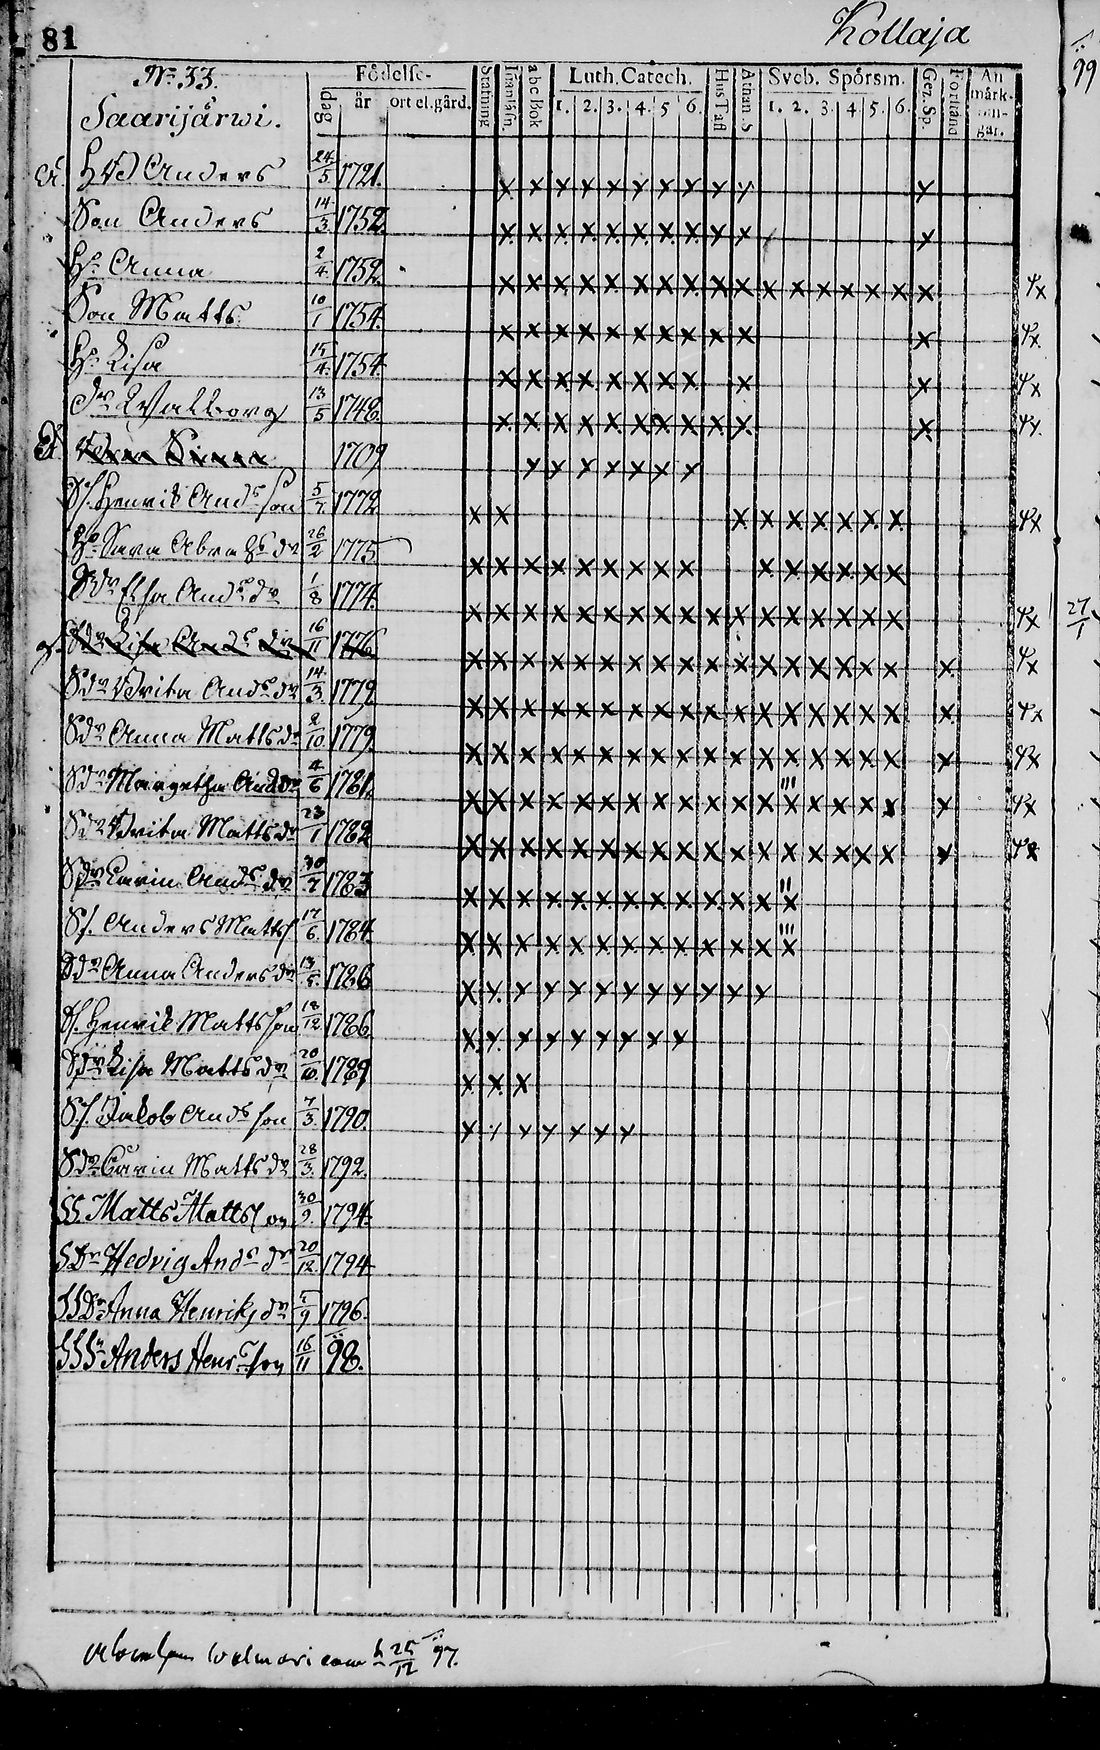 81 Kollaja
No 33. Födelse- Stafning Innanläsn. abc Bok Luth. Catech. Hus Tafl Athan. S Sveb. Spörsm. Gez. Sp. Förstånd An märk- nin- gar.
Saarijärwi. dag år ort el. gård. 1. 2. 3. 4. 5 6. 1. 2. 3. 4. 5. 6.
Anders 24/5 1721. x x x x x x x x x x x
Son Anders 14/3 1752. x x x x x x x x x x x
Ho Anna 2/4 1752. x x x x x x x x x x x x x x x x x 4x
Son Matts 10/1 1754. x x x x x x x x x x x 4x
Ho Lisa 15/4 1754 x x x x x x x x x x 4x
Dr Walborg 13/5 1748. x x x x x x x x x x x 4x
1709 x x x x x x x
Henrik Ands son 5/7 1772 x x x x x x x x x 4x
Ho Sara Abrahs dr 26/2 1775 x x x x x x x x x x x x x x x
Elsa Ands dr 1/8 1774. x x x x x x x x x x x x x x x x x 4x
Sdr Lisa Ands dr 16/11 1776 x x x x x x x x x x x x x x x x x x 4x
Sdr Brita Ands dr 14/3 1779 x x x x x x x x x x x x x x x x x x 4x
Sdr Anna Matts dr 2/10 1779 x x x x x x x x x x x x x x x x x x 4x
Sdr Margetha And dr 4/6 1781. x x x x x x x x x x x x x x x x x x 4x
Sdr Brita Matts dr 23/1 1782 x x x x x x x x x x x x x x x x x x 4x
Sdr Carin Ands dr 30/7 1783 x x x x x x x x x x x x x
Ss. Anders Matts 17/6 1784. x x x x x x x x x x x x x
Sdr Anna Anders dr 13/5 1786 x x x x x x x x x x x x
Ss. Henrik Matts son 18/12 1786 x x x x x x x x x
Sdr Lisa Matts dr 20/10 1789 x x x
Ss. Jakob Ands son 7/3 1790. x x x x x x x
Sdr Carin Matts dr 28/3. 1792.
SS. Matts Mattson 30/9. 1794.
SDr Hedvig Ands dr 20/12 1794
SSDr Anna Henriks dr 5/9 1796.
SSSn Anders Henr. son 16/11 98.
25/12 97.